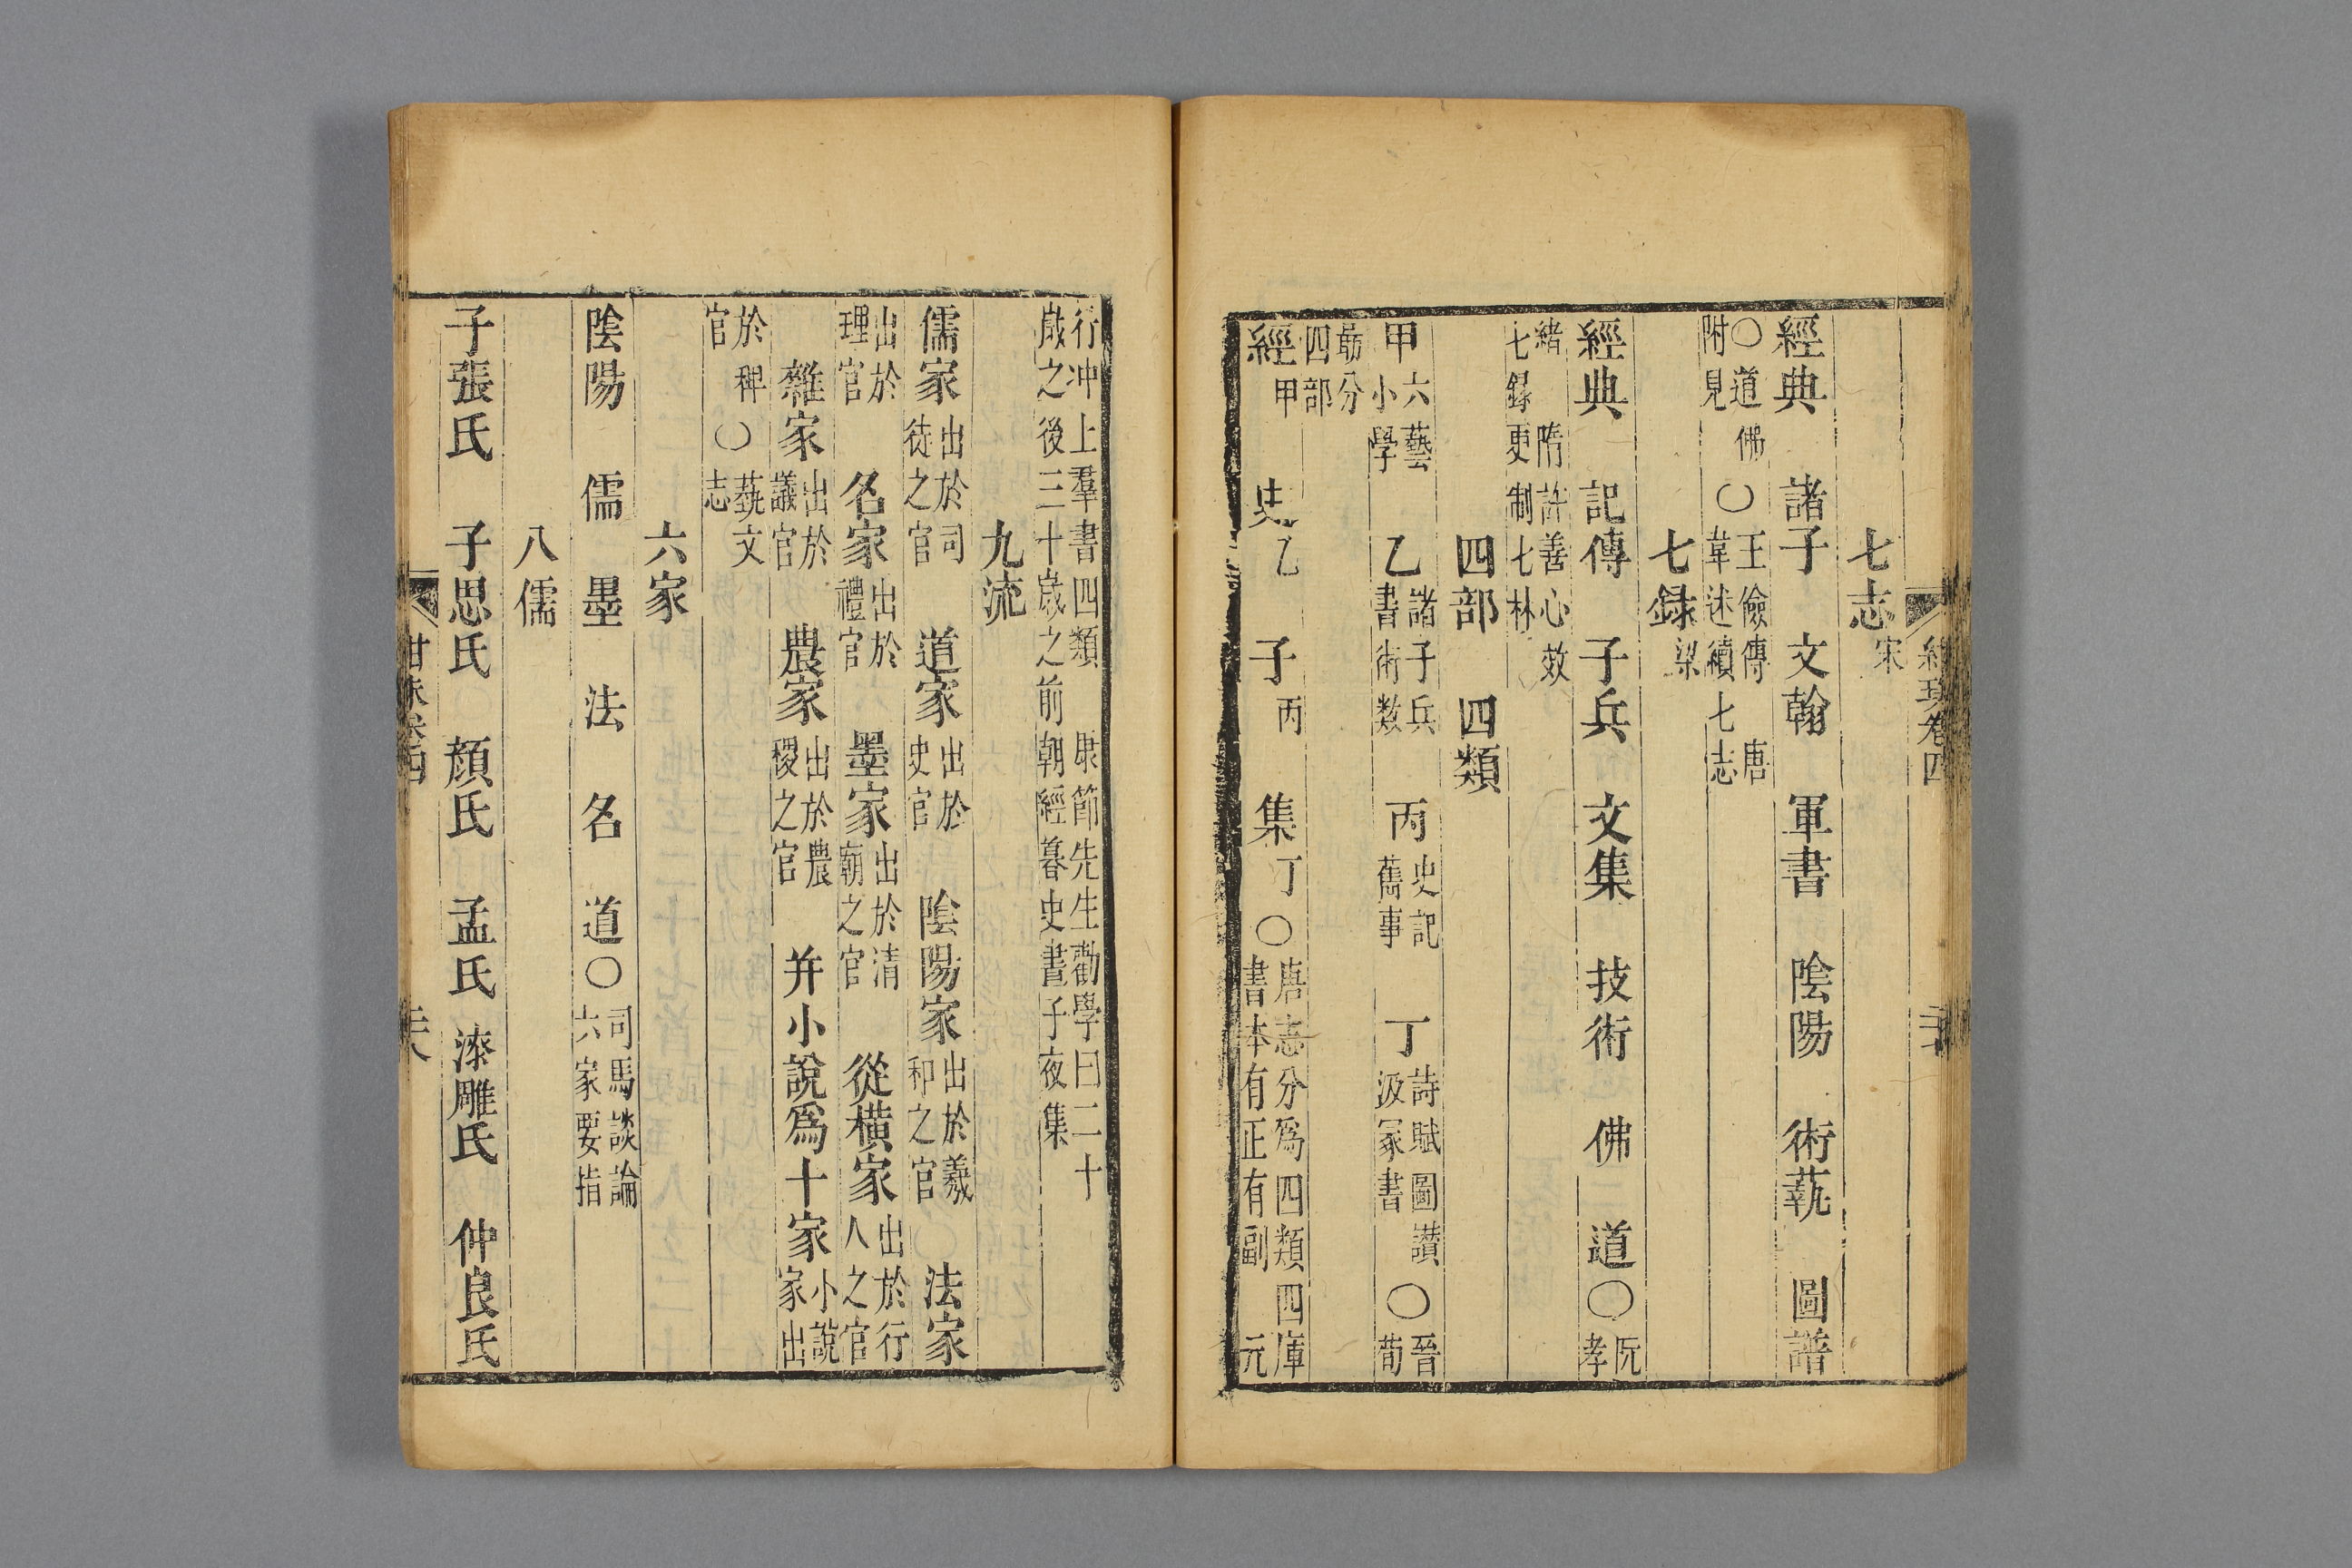 卷四
七志宋
經典 諸子 文翰 軍書 陰陽 術蓺 圖譜
○道佛附見○王儉傳 唐韋述續七志
七録梁
經典 記傳 子兵 文集 技術 佛 道○阮孝
緒七録 隋許善心效更制七林
四部 四類
甲六藝小學 乙諸子兵書術數 丙史記舊事 丁詩賦圖讃汲冢書○晉荀
勗分四部
經甲 史乙 子丙 集丁○唐志分爲四類四庫書本有正有副 元
行冲上羣書四類 康節先生勸學曰二十歲之後三十歲之前朝經暮史晝子夜集
九流
儒家出於司徒之官 道家出於史官 陰陽家出於羲和之官 法家
出於理官 名家出於禮官 墨家出於清廟之官 從橫家出於行人之官
雜家出於議官 農家出於農稷之官 并小說爲十家小說家出
於稗官○蓺文志
六家
陰陽 儒 墨 法 名 道○司馬談論六家要指
八儒
子張氏 子思氏 顔氏 孟氏 漆雕氏 仲良氏